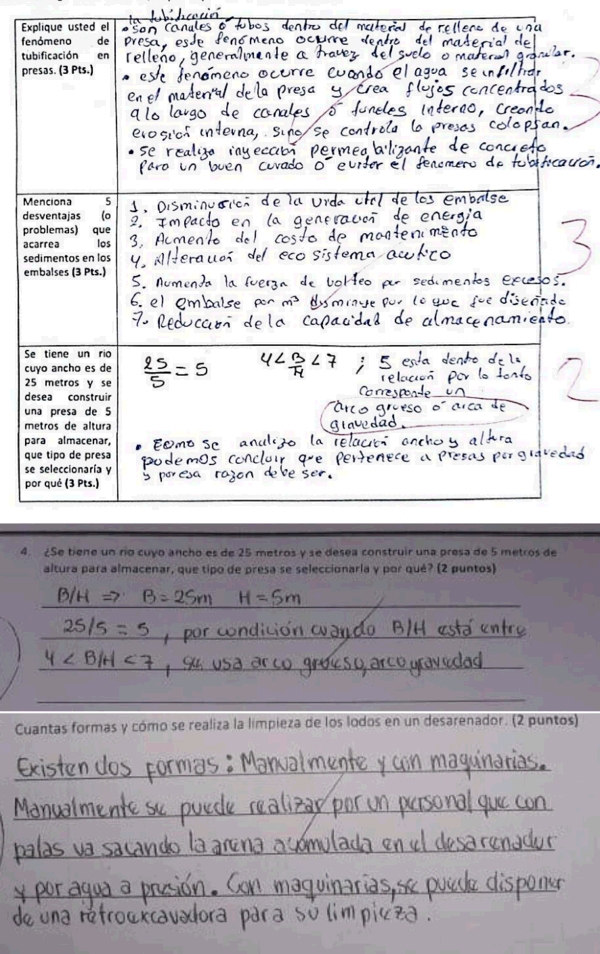 Explique usted el fenómeno de tubificación en presas. (3 Pts.)
la tubificación
• son canales o tubos dentro del material de relleno de una
presa, este fenómeno ocurre dentro del material de
relleno, generalmente a travez del suelo o material granular.
• este fenómeno ocurre cuando el agua se infiltrar
en el material de la presa y crea flujos concentrados
a lo largo de canales o tuneles interno, creando
erosión interna, sino se controla la presas colapsan.
• se realiza inyección permeabilizante de concreto
para un buen curado o evitar el fenomero de tubificación.
3
Menciona 5 desventajas (o problemas) que acarrea los sedimentos en los embalses (3 Pts.)
1. Disminución de la vida util de los embalse
2. Impacto en la generación de energía
3. Aumento del costo de mantenimento
4. Alteración del eco sistema acutico
5. Aumenta la fuerza de volteo por sedimentos Excesos.
6. el embalse por m³ disminuye por lo que fue diseñado
7. Reducción de la capacidad de almacenamiento.
3
Se tiene un rio cuyo ancho es de 25 metros y se desea construir una presa de 5 metros de altura para almacenar, que tipo de presa se seleccionaría y por qué (3 Pts.)
25/5 = 5 4 < B/H < 7 ; 5 esta dento de la
relacion por lo tanto
corresponde un
arco grueso ó arca de
gravedad.
• como se analizo la relación ancho y altura
podemos concluir que pertenece a presas por gravedad
y por esa razon debe ser.
2
4. ¿Se tiene un rio cuyo ancho es de 25 metros y se desea construir una presa de 5 metros de
altura para almacenar, que tipo de presa se seleccionaría y por qué? (2 puntos)
B/H => B = 25m H = 5m
25/5 = 5, por condición cuando B/H está entre
4 < B/H < 7, se usa arco grueso, arco gravedad
Cuantas formas y cómo se realiza la limpieza de los lodos en un desarenador. (2 puntos)
Existen dos formas: Manualmente y con maquinarias.
Manualmente se puede realizar por un personal que con
palas va sacando la arena acumulada en el desarenador
y por agua a presión. Con maquinarias, se puede disponer
de una retroexcavadora para su limpieza.